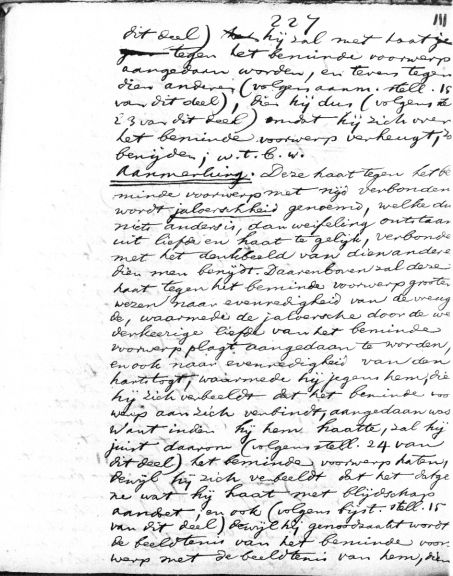 227
111
dit deel) hij zal met haat je
tegen het beminde voorwerp
aangedaan worden, en tevens tegen
dien anderen (volgens aanm. stell. 15
van dit deel), dien hij dus (volgens ste
23 van dit deel) omdat hij zich over
het beminde voorwerp verheugt, zo
benijden; w. t. b. w.
Aanmerking. Deze haat tegen het be
minde voorwerp met nijd verbonden
wordt jaloerschheid genoemd, welke du
niets anders is, dan weifeling ontstaan
uit liefde en haat te gelijk, verbonde
met het denkbeeld van dien andere
dien men benijdt. Daarenboven zal deze
haat tegen het beminde voorwerp grooter
wezen naar evenredigheid van de vreug
de, waarmede de jaloersche door de we
derkeerige liefde van het beminde
voorwerp plagt aangedaan te worden,
en ook naar evenredigheid van den
hartstogt, waarmede hij jegens hem, die
hij zich verbeeldt dat het beminde voo
werp aan zich verbindt, aangedaan was
Want indien hij hem haatte, zal hij
juist daarom (volgens stell. 24 van
dit deel) het beminde voorwerp haten,
dewijl hij zich verbeeldt dat het datge
ne wat hij haat met blijdschap
aandoet, en ook (volgens bijst. stell. 15
van dit deel) dewijl hij genoodzaakt wordt
de beeldtenis van het beminde voor
werp met de beeldtenis van hem, dien